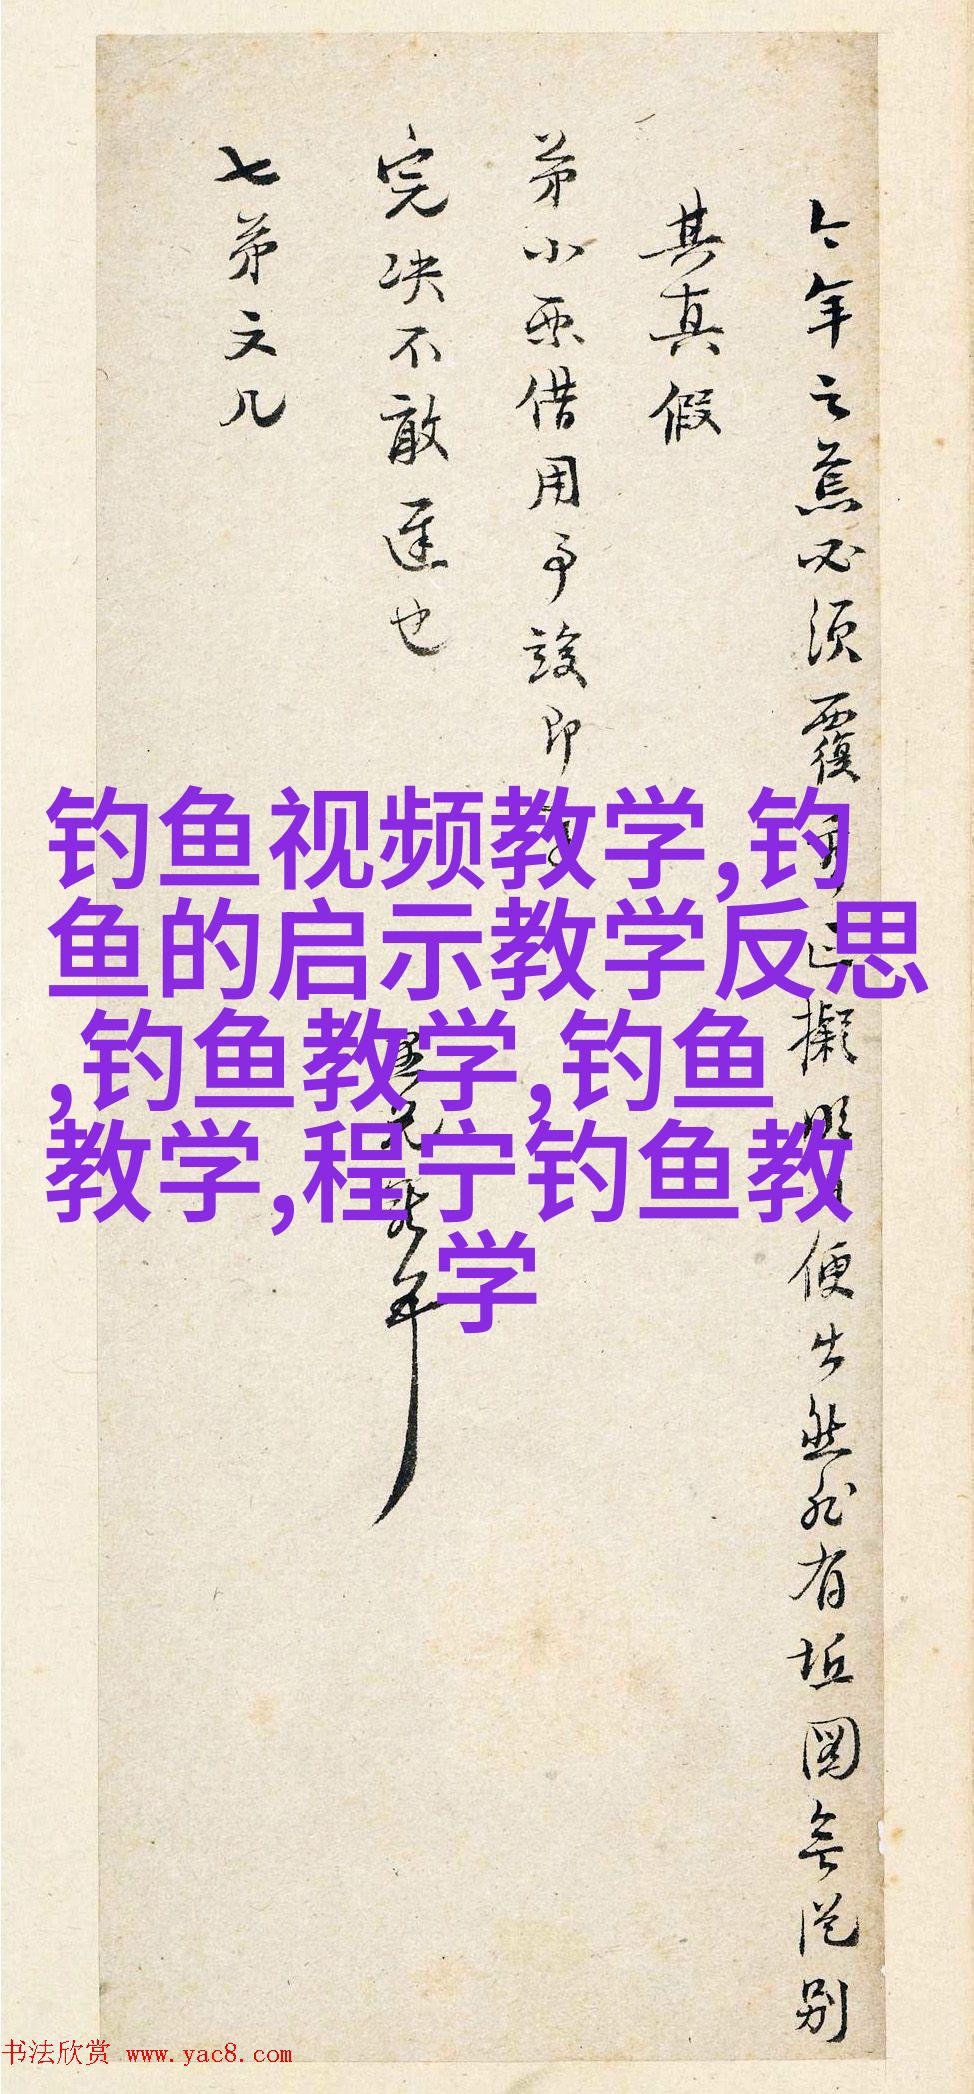 今年之蕉必须覆
擬
便出然形有坵图無從别
其真假
弟小票借用事竣即
完决不敢遲也
弟年
七弟文几
钓鱼视频教学,钓
鱼的启示教学反思
,钓鱼教学,钓鱼
教学,程宁钓鱼教
学
书法欣赏 www.yac8.com